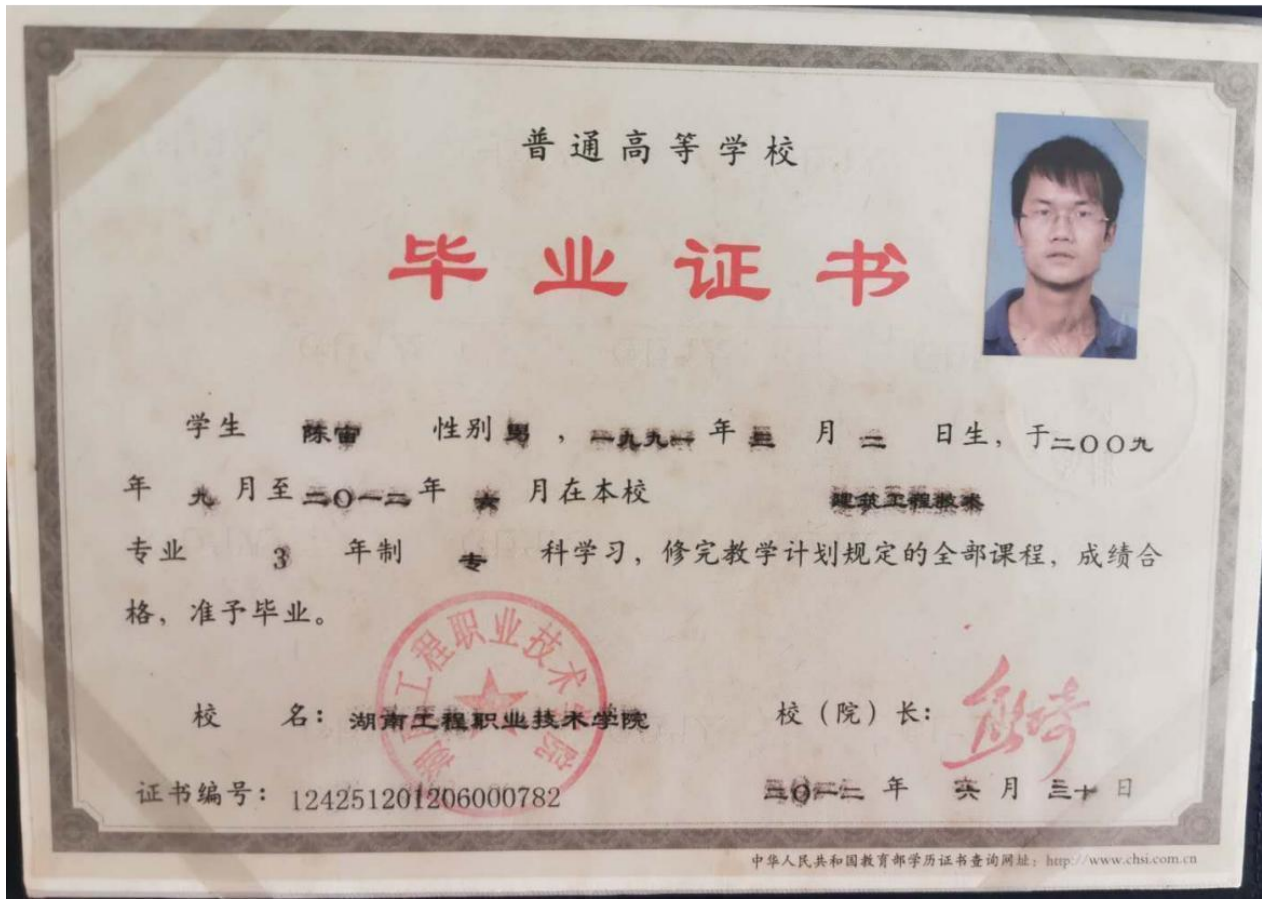 普通高等学校
毕业证书
学生 陈宙 性别 男，一九九一年三月二日生，于二〇〇九
年九月至二〇一二年六月在本校 建筑工程技术
专业 3 年制 专 科学习，修完教学计划规定的全部课程，成绩合
格，准予毕业。
湖南工程职业技术学院
校 名：湖南工程职业技术学院 校（院）长：
证书编号：124251201206000782 二〇一二年 六月三十日
中华人民共和国教育部学历证书查询网址：http://www.chsi.com.cn